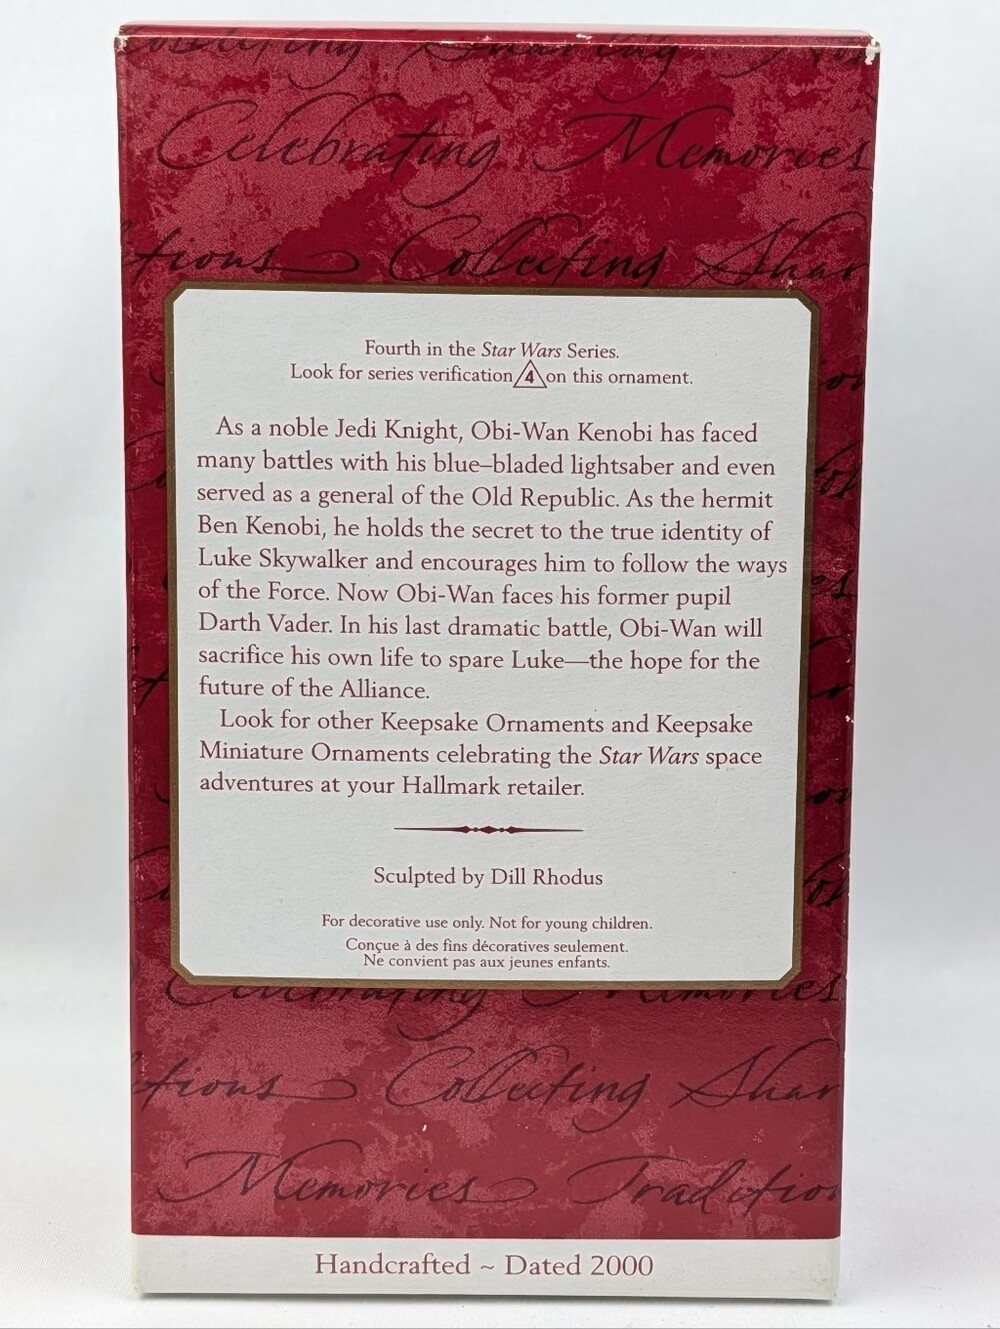 Collecting Sha
Celebrating Memories
tions Collecting Shar
Fourth in the Star Wars Series.
Look for series verification 4 on this ornament.
As a noble Jedi Knight, Obi-Wan Kenobi has faced
many battles with his blue–bladed lightsaber and even
served as a general of the Old Republic. As the hermit
Ben Kenobi, he holds the secret to the true identity of
Luke Skywalker and encourages him to follow the ways
of the Force. Now Obi-Wan faces his former pupil
Darth Vader. In his last dramatic battle, Obi-Wan will
sacrifice his own life to spare Luke—the hope for the
future of the Alliance.
Look for other Keepsake Ornaments and Keepsake
Miniature Ornaments celebrating the Star Wars space
adventures at your Hallmark retailer.
Sculpted by Dill Rhodus
For decorative use only. Not for young children.
Conçue à des fins décoratives seulement.
Ne convient pas aux jeunes enfants.
Celebrating Memories
tions Collecting Shar
Memories Tradition
Handcrafted ~ Dated 2000